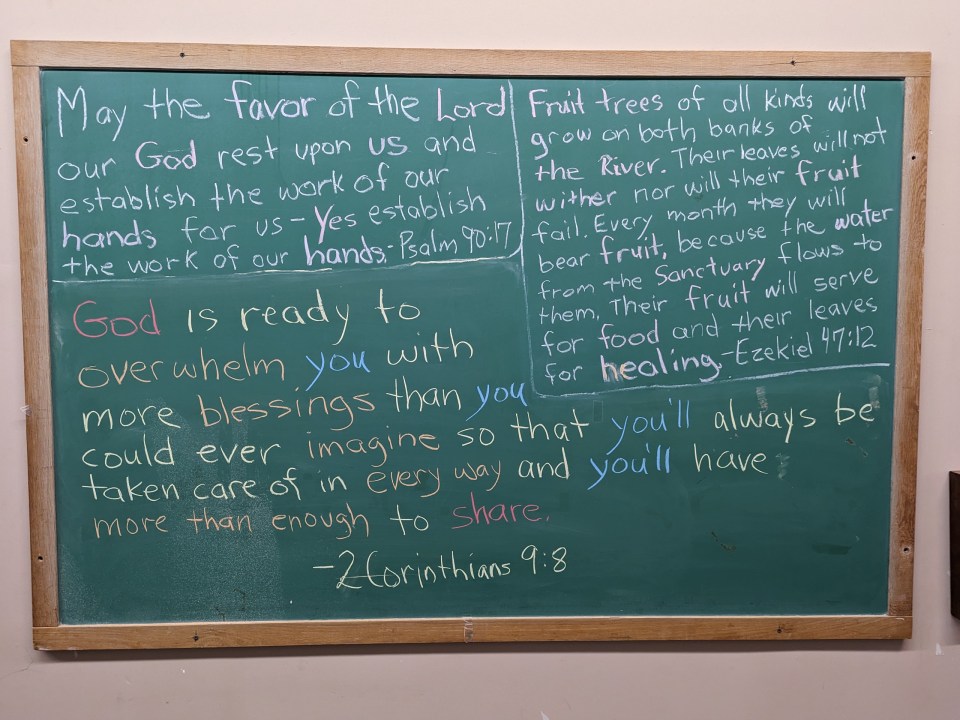 May the favor of the Lord
our God rest upon us and
establish the work of our
hands for us - Yes establish
the work of our hands. - Psalm 90:17
Fruit trees of all kinds will
grow on both banks of
the River. Their leaves will not
wither nor will their fruit
fail. Every month they will
bear fruit, because the water
from the Sanctuary flows to
them. Their fruit will serve
for food and their leaves
for healing. - Ezekiel 47:12
God is ready to
overwhelm you with
more blessings than you
could ever imagine so that you'll always be
taken care of in every way and you'll have
more than enough to share.
- 2 Corinthians 9:8